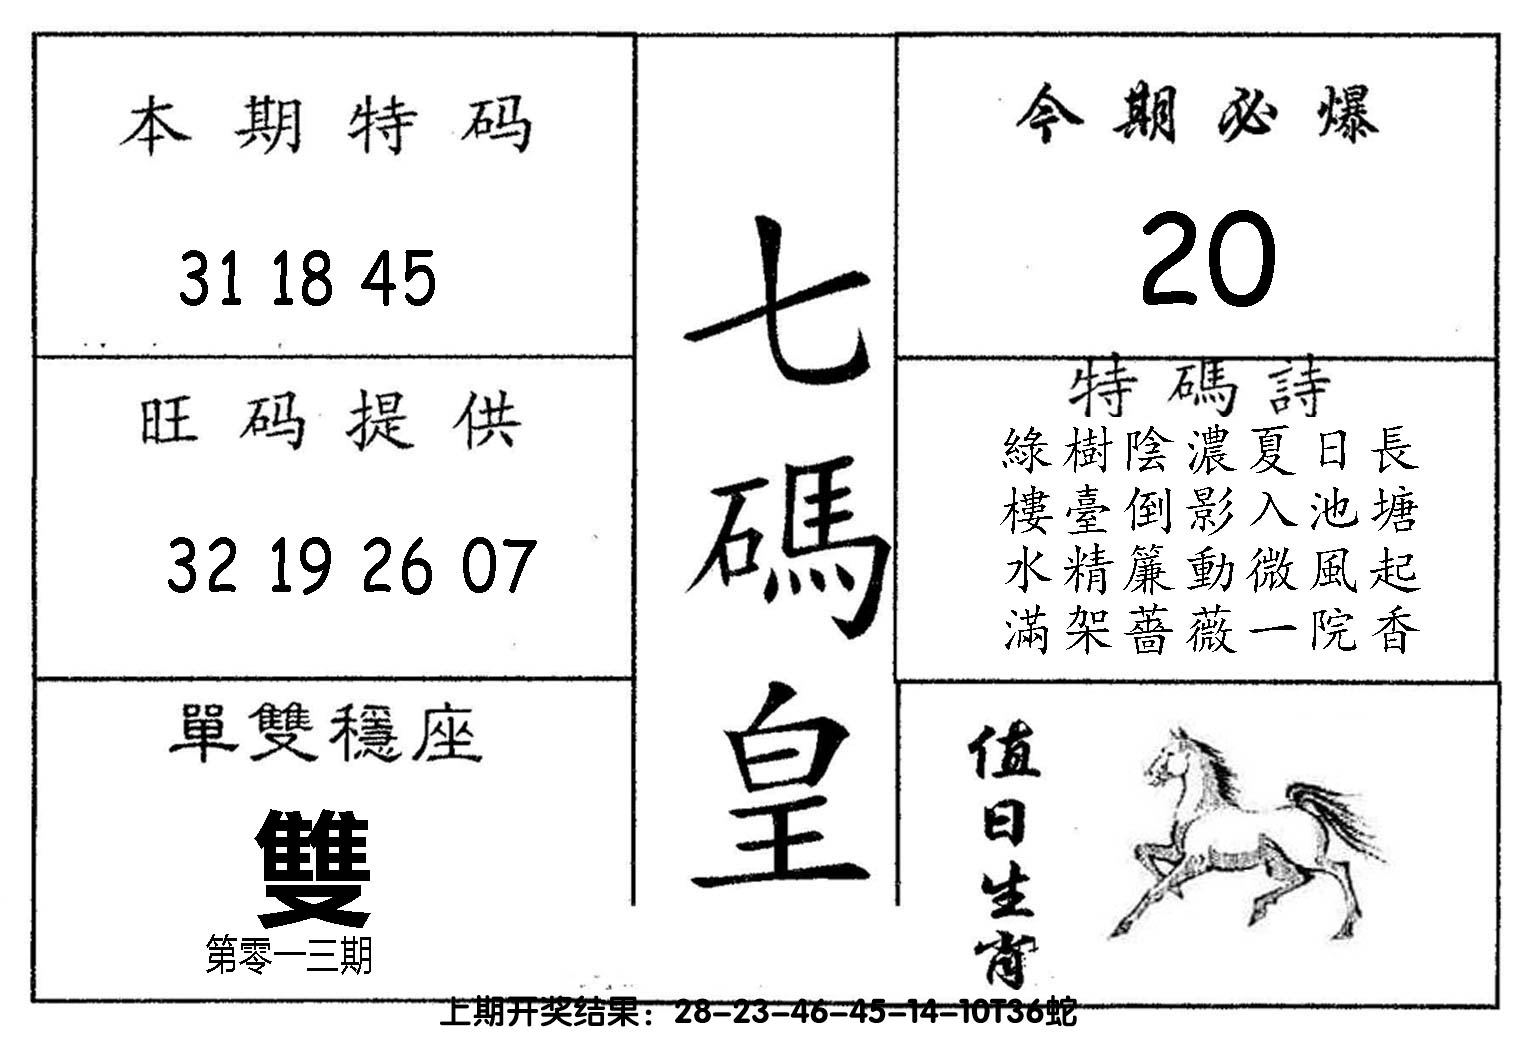 本期特码
31 18 45
旺码提供
32 19 26 07
單雙穩座
雙
第零一三期
七碼皇
今期必爆
20
特碼詩
綠樹陰濃夏日長
樓臺倒影入池塘
水精簾動微風起
滿架薔薇一院香
值日生肖
上期开奖结果：28-23-46-45-14-10T36蛇